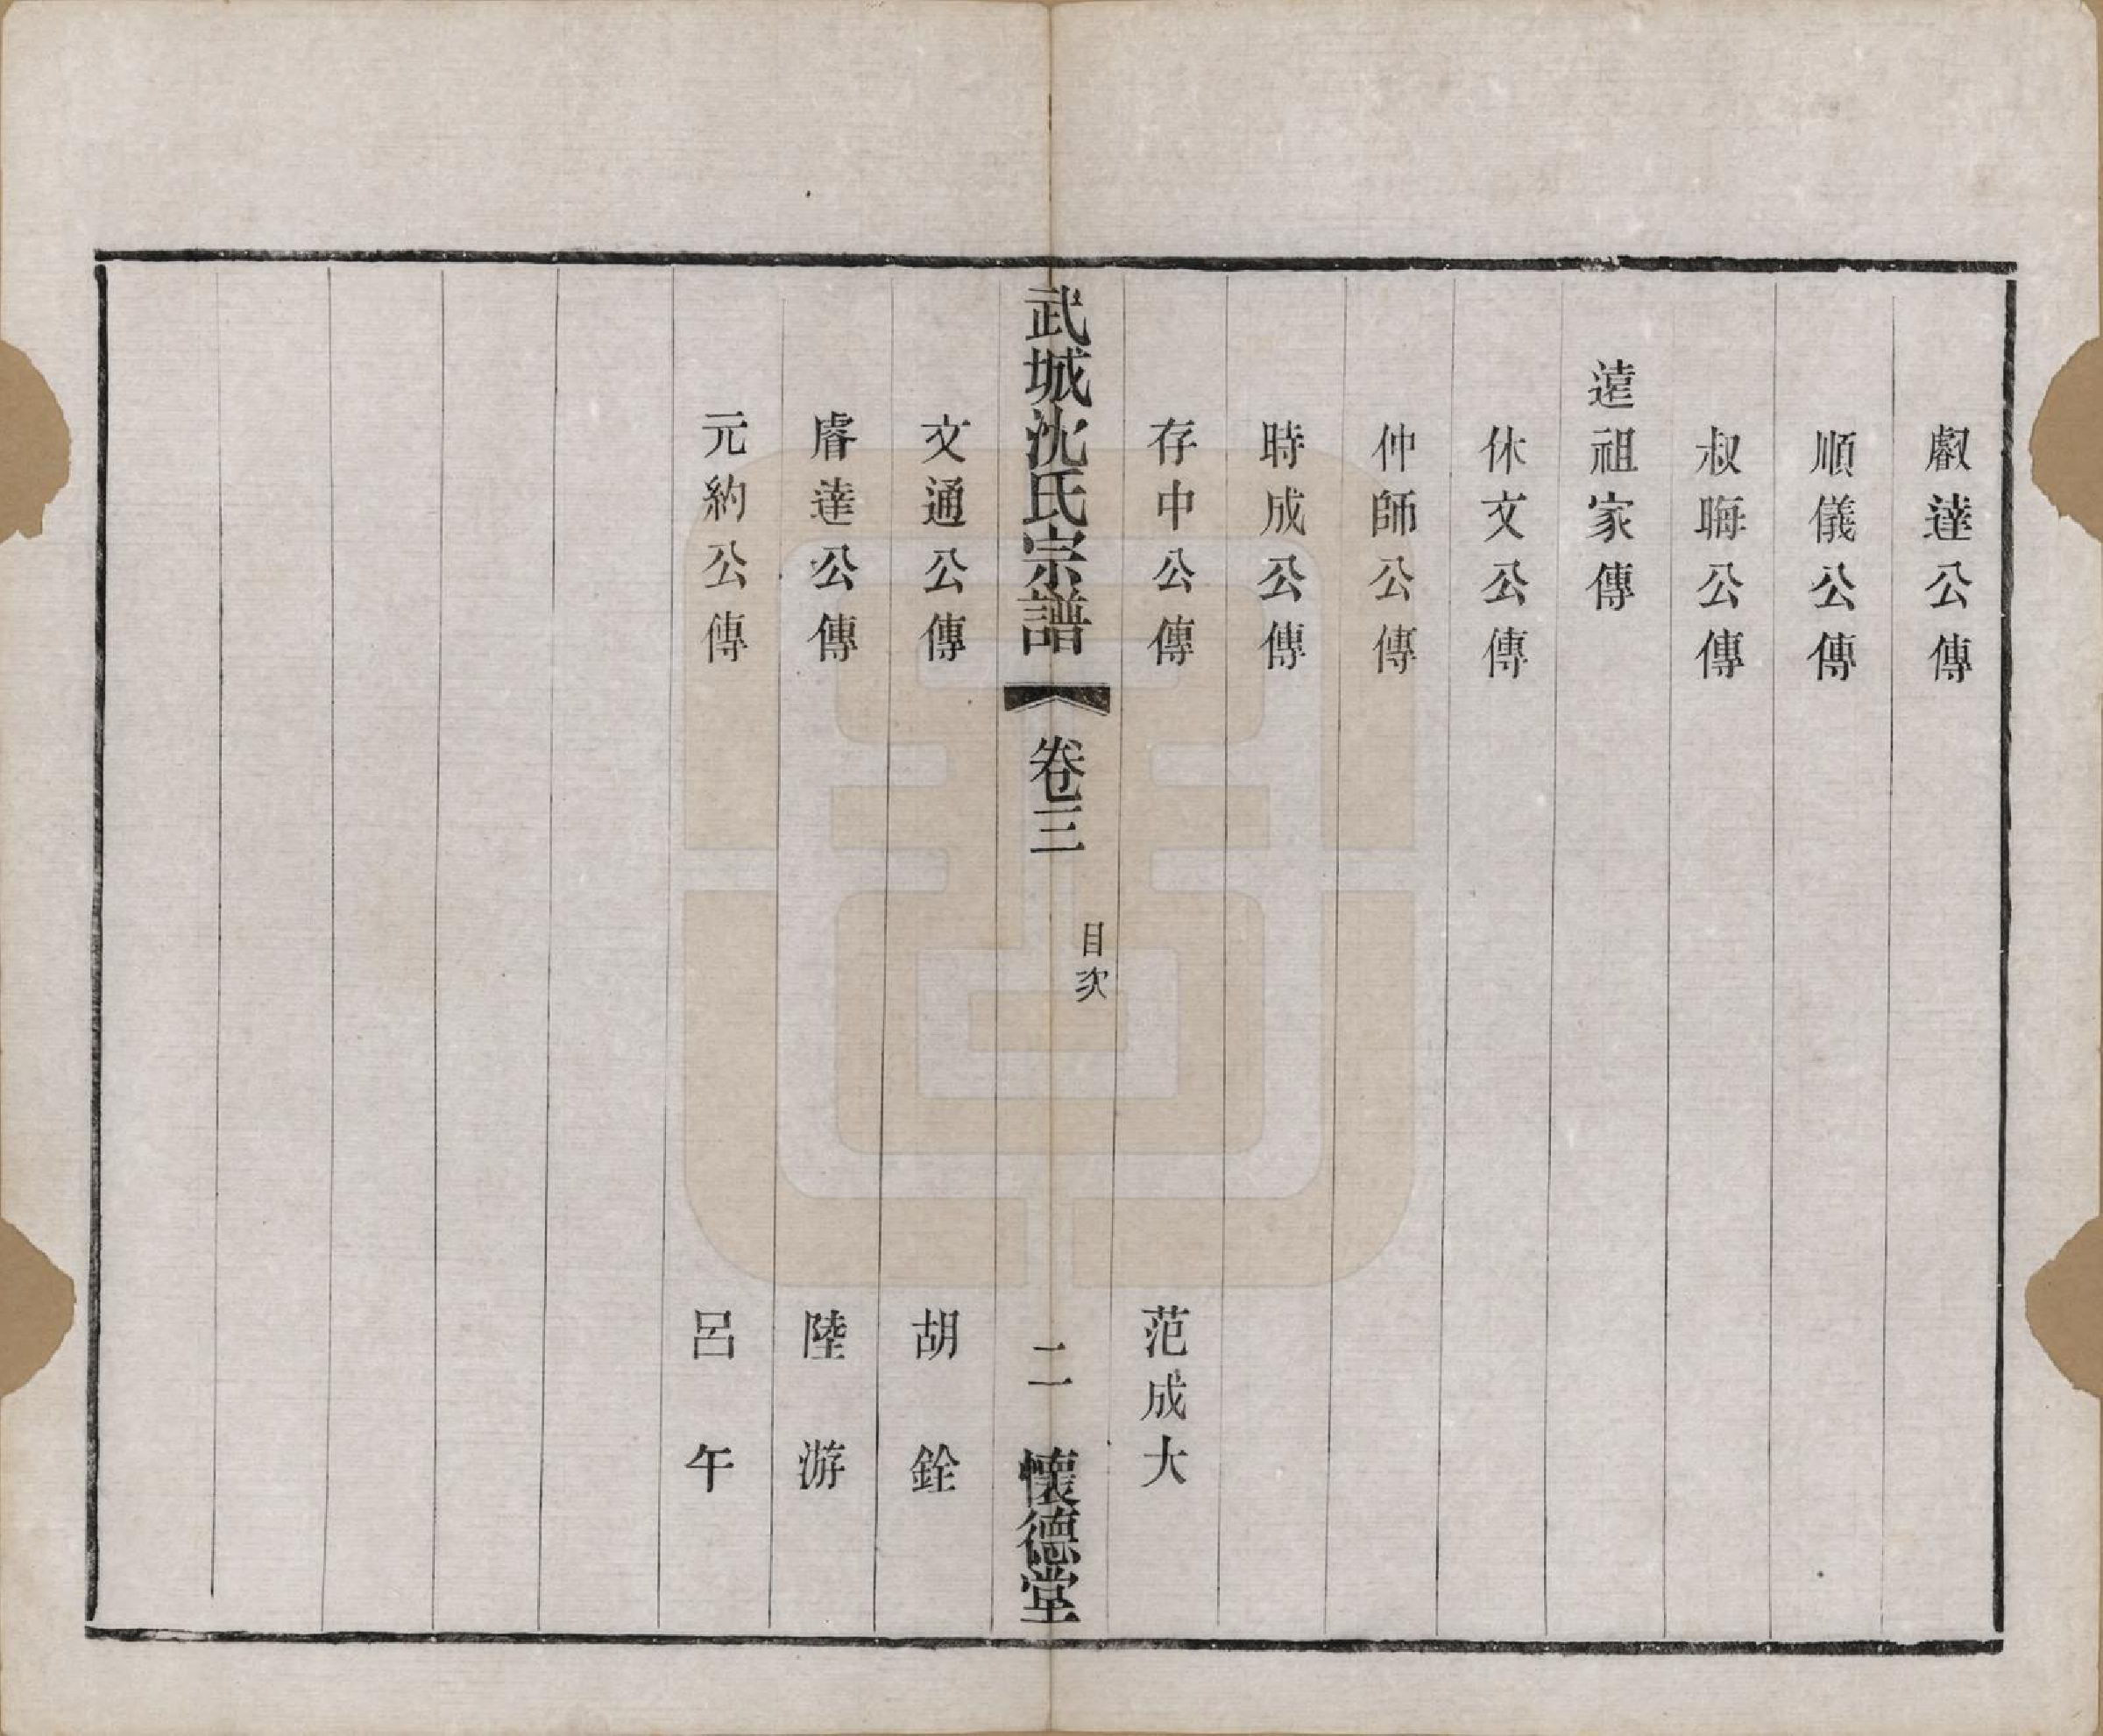 叡達公傳
順儀公傳
叔晦公傳
遠祖家傳
休文公傳
仲師公傳
時成公傳
存中公傳 范成大
武城沈氏宗譜 卷三 目次 二 懷德堂
文通公傳 胡銓
睿達公傳 陸游
元約公傳 呂午